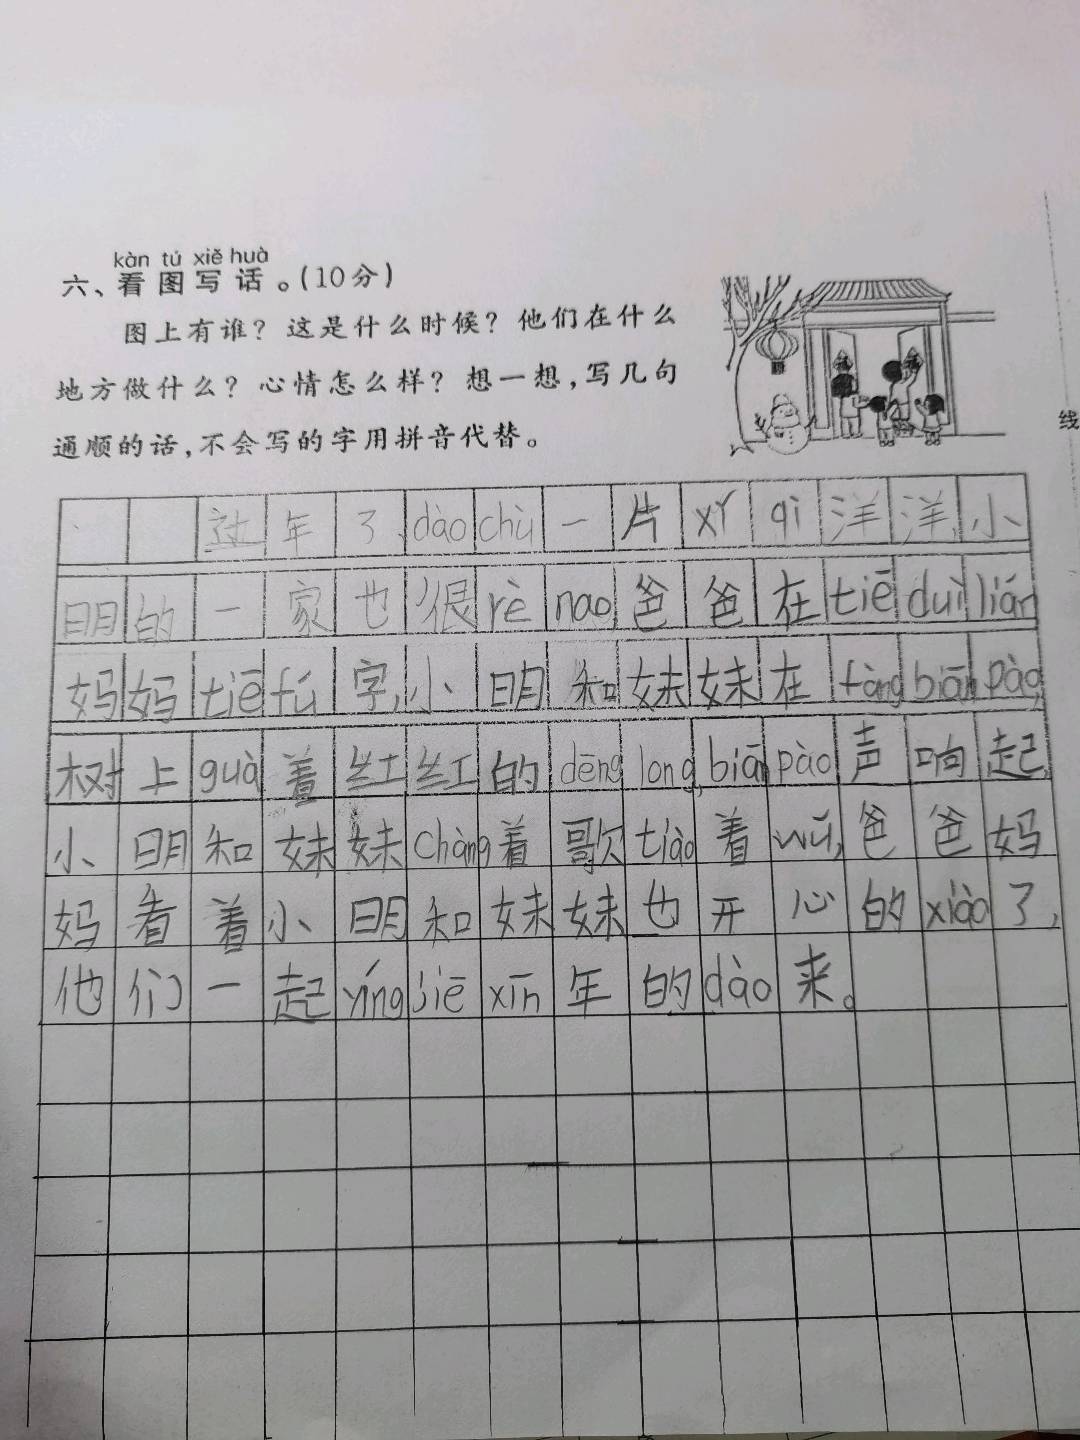 kàn tú xiě huà
六、看图写话。(10分)
图上有谁?这是什么时候?他们在什么
地方做什么?心情怎么样?想一想,写几句
通顺的话,不会写的字用拼音代替。
线
过年了,dàochù一片xǐqì洋洋,小
明的一家也很rènao,爸爸在tiēduìlián
妈妈tiēfú字,小明和妹妹在fàngbiānpào,
树上guà着红红的dēnglong,biānpào声响起,
小明和妹妹chàng着歌tiào着wǔ,爸爸妈
妈看着小明和妹妹也开心的xiào了,
他们一起yíngjiēxīn年的dào来。